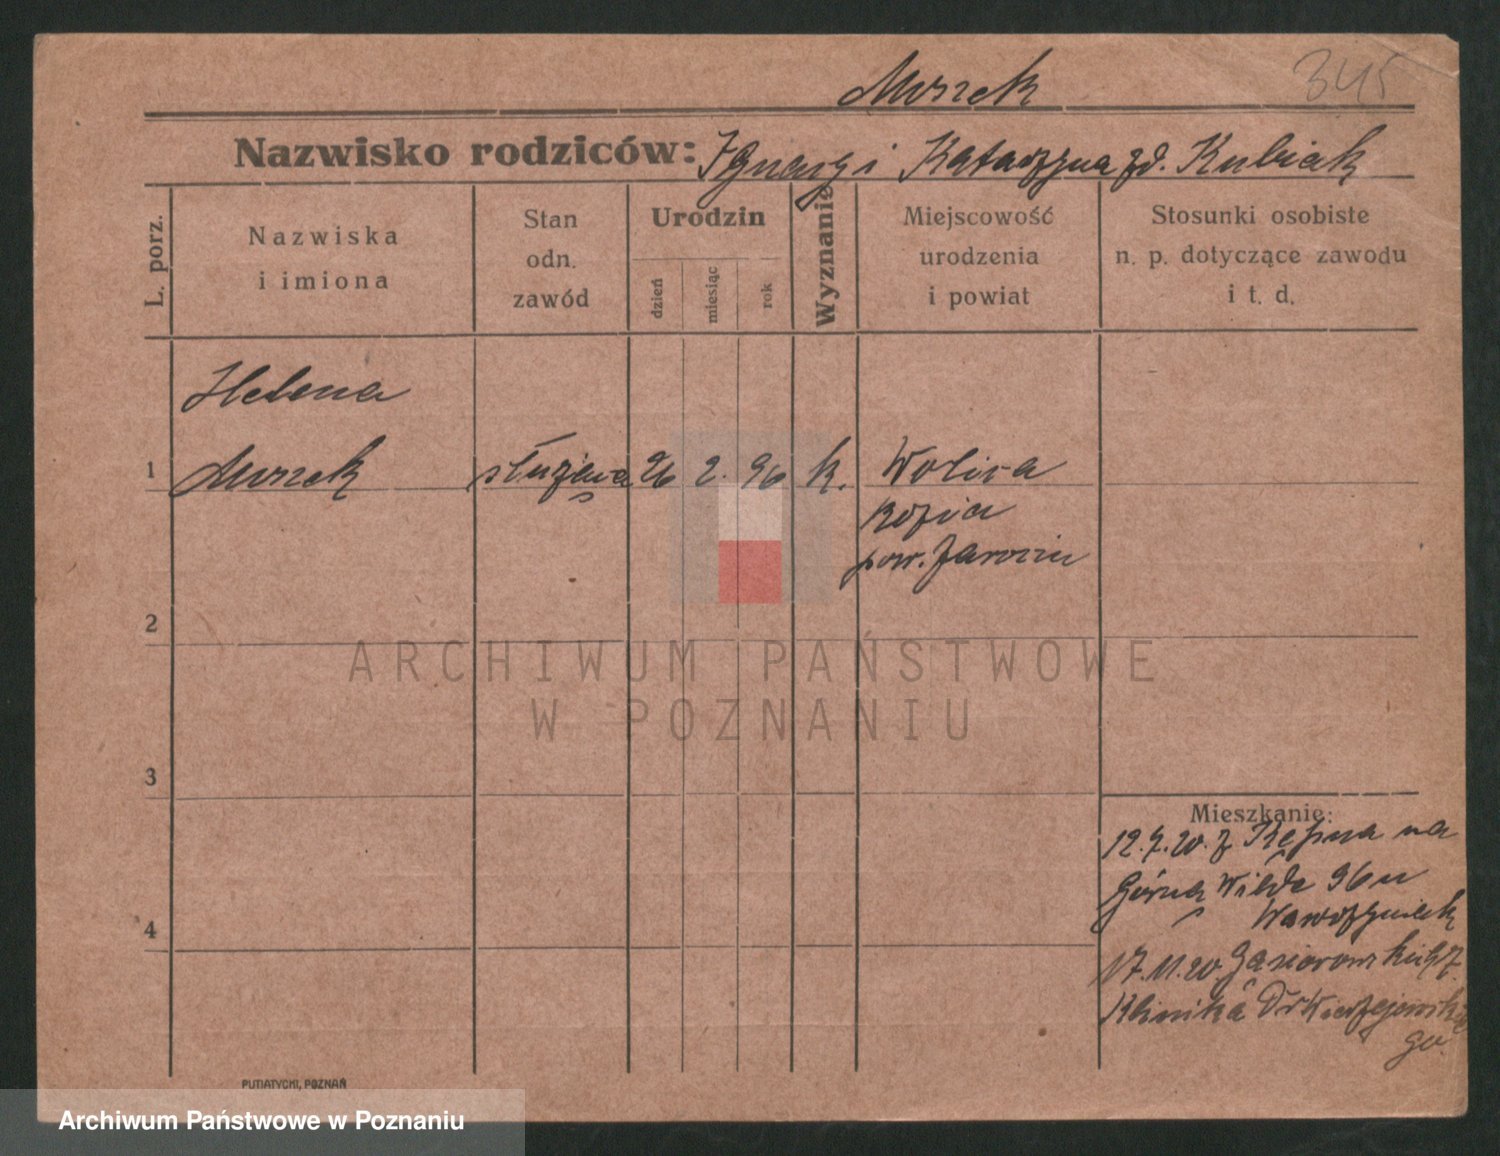 Mrszek 345
Nazwisko rodziców: Ignacy i Katarzyna zd. Kubiak
L. porz.
Nazwiska
i imiona
Stan
odn.
zawód
Urodzin
dzień
miesiąc
rok
Wyznanie
Miejscowość
urodzenia
i powiat
Stosunki osobiste
n. p. dotyczące zawodu
i t. d.
Helena
1 Mrszek służąca 26 2. 96 k. Wolica
Kozia
pow. Jarocin
2
ARCHIWUM PAŃSTWOWE
W POZNANIU
3
Mieszkanie:
12.7.20. z Kępna na
Górną Wildę 96 u
Wawrzyniak
4
17.11.20. Gąsiorowskich 7.
Klinika Dr Wierzejewskie
go.
PUTIATYCKI, POZNAŃ
Archiwum Państwowe w Poznaniu